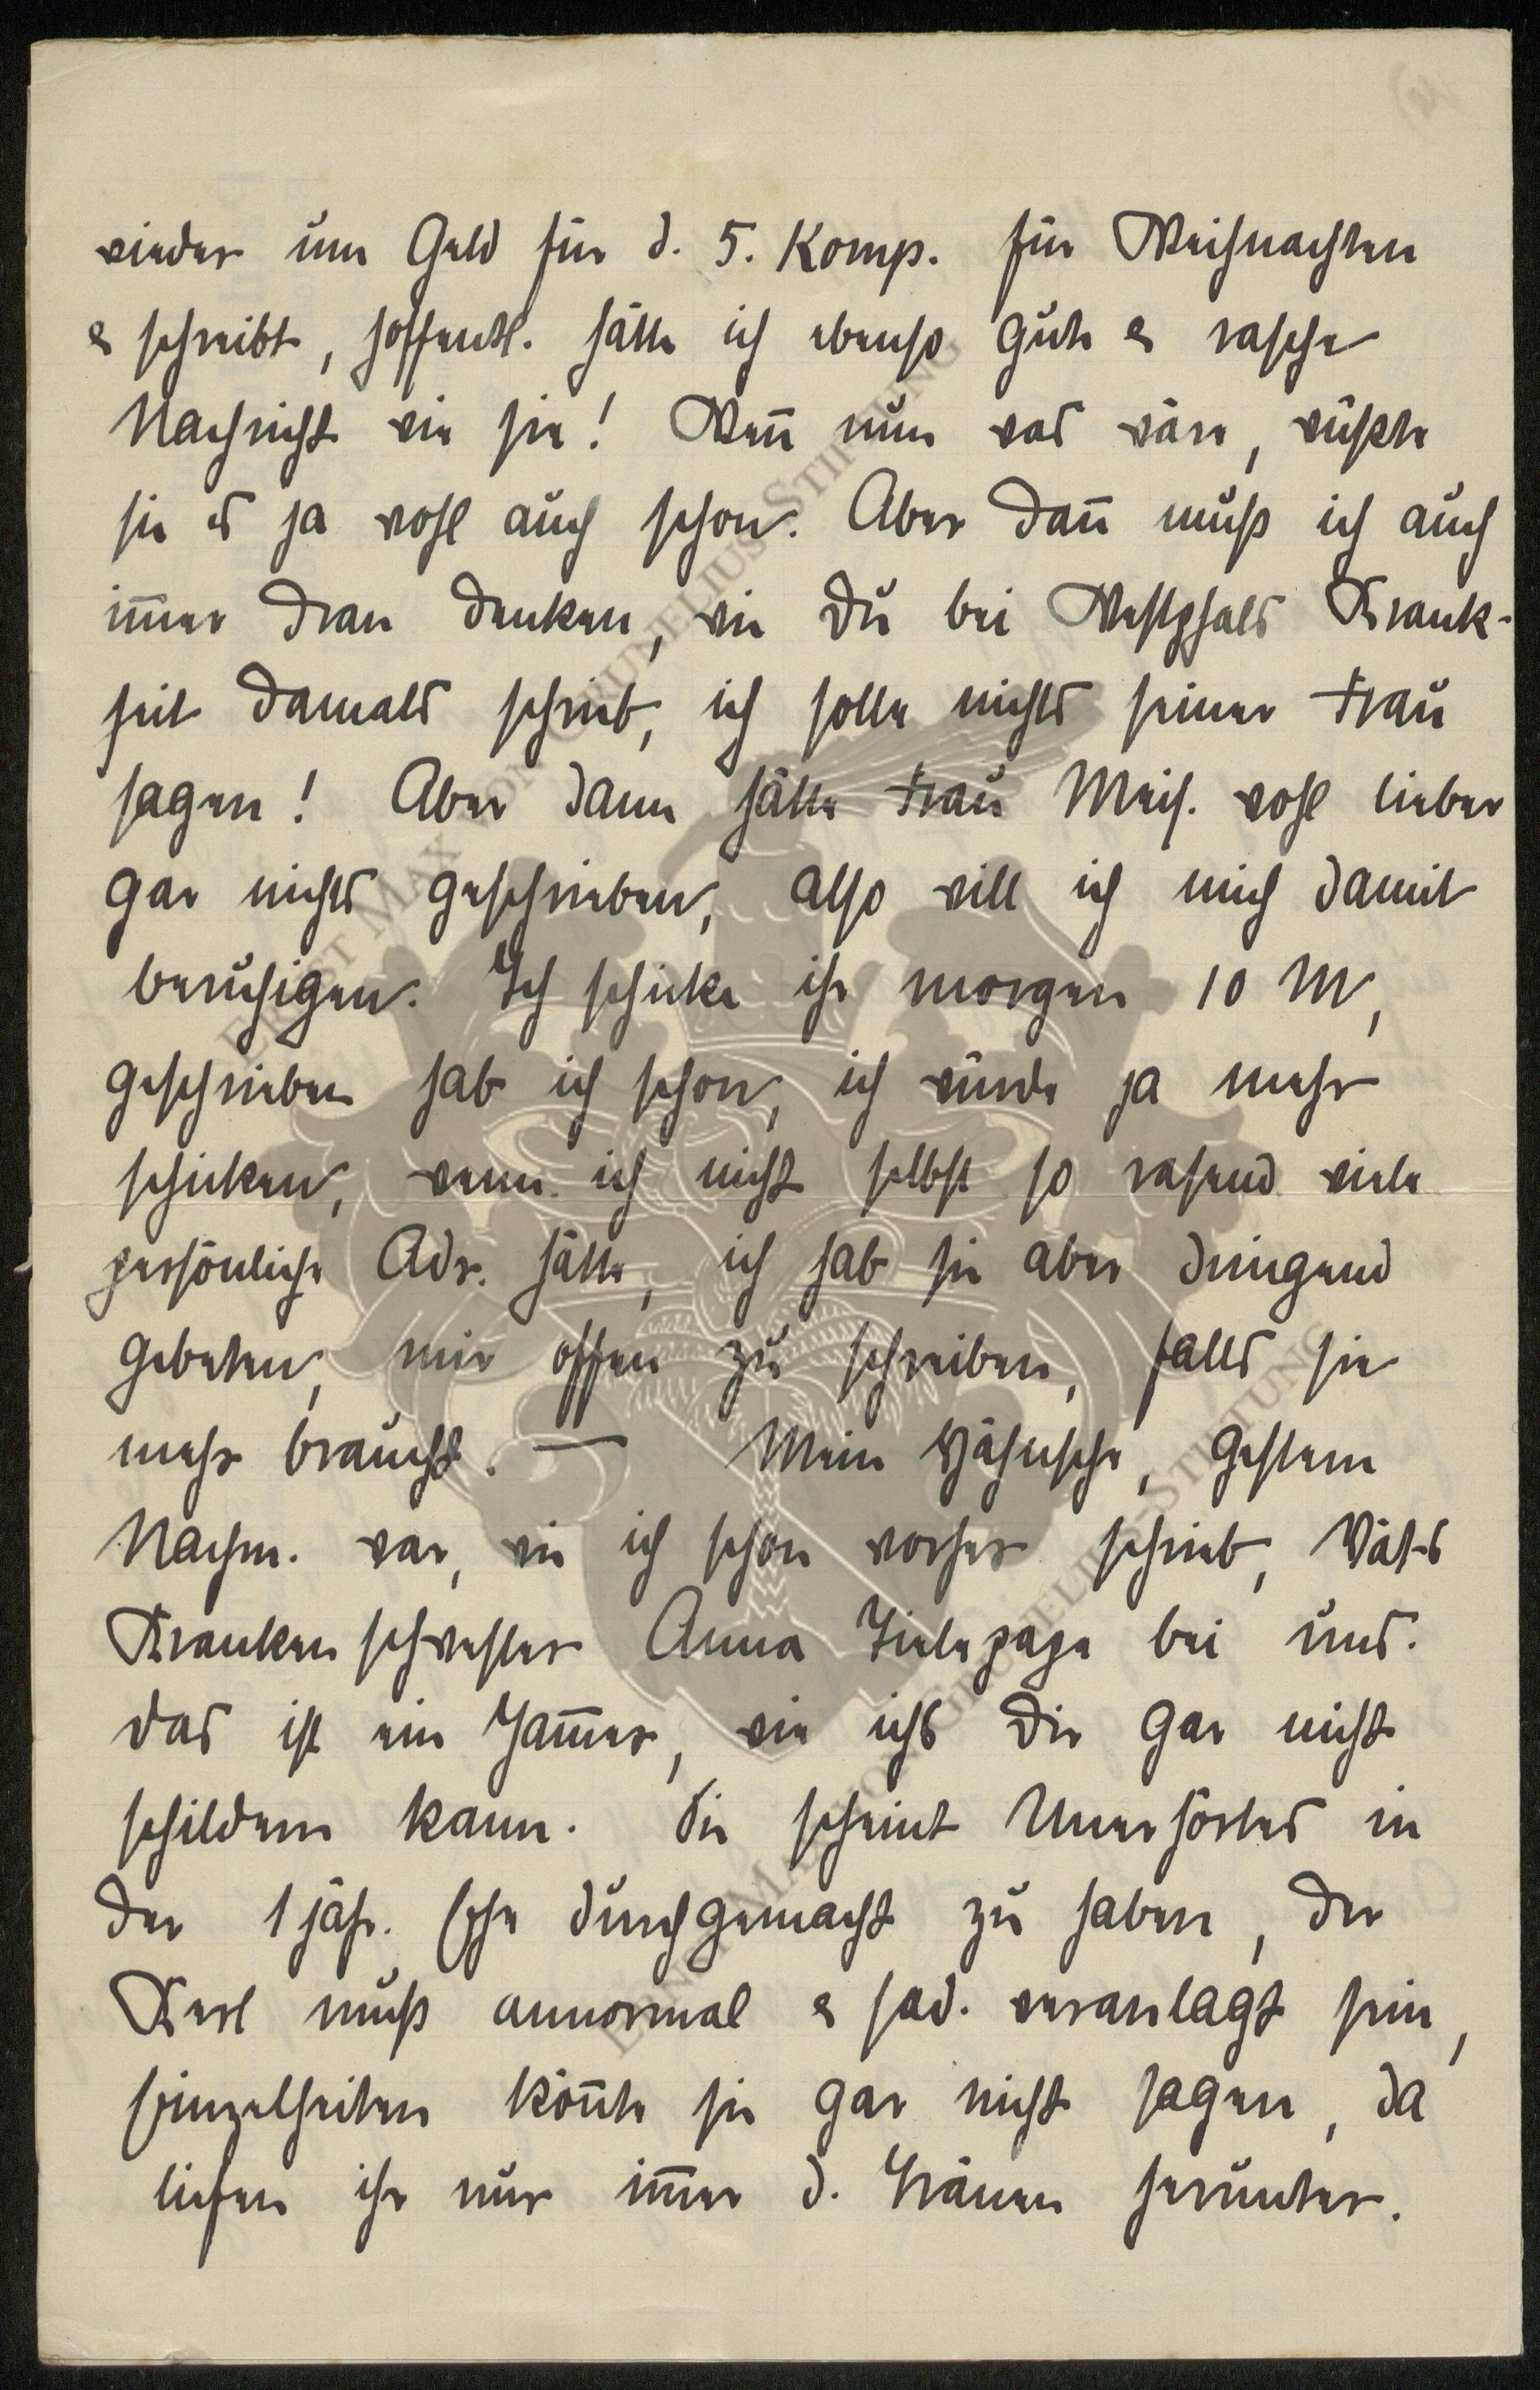 wieder um Geld für d. 5. Komp. für Weihnachten
& schreibt, hoffentl. hätte ich ebenso gute & rasche
Nachricht wie sie! Wen̄ nun was wäre, wüßte
sie es ja wohl auch schon. Aber dan̄ muß ich auch
im̄er dran denken, wie Du bei Westphals Krank-
heit damals schrieb, ich solle nichts seiner Frau
sagen! Aber dann hätte Frau Meih. wohl lieber
gar nichts geschrieben, also will ich mich damit
beruhigen. Ich schicke ihr morgen 10 M,
geschrieben hab ich schon, ich würde ja mehr
schicken, wenn ich nicht selbst so rasend viele
persönliche Adr. hätte, ich hab sie aber dringend
gebeten, mir offen zu schreiben, falls sie
mehr braucht. — Mein Hähnsche, gestern
Nachm. war, wie ich schon vorher schrieb, Vät's
Krankenschwester Anna Zielepape bei uns.
Das ist ein Jam̄er, wie ichs Dir gar nicht
schildern kann. Die scheint Unerhörtes in
der 1jäh. Ehe durchgemacht zu haben, der
Kerl muß annormal & sad. veranlagt sein,
Einzelheiten kön̄te sie gar nicht sagen, da
liefen ihr nur im̄er d. Tränen herunter.
ERNST MAX VON GRUNELIUS-STIFTUNG
ERNST MAX VON GRUNELIUS-STIFTUNG